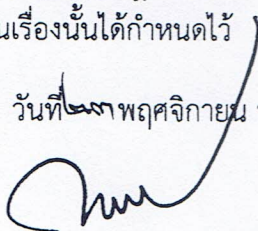 นเรื่องนั้นได้กำหนดไว้
วันที่ ๒๓ พฤศจิกายน